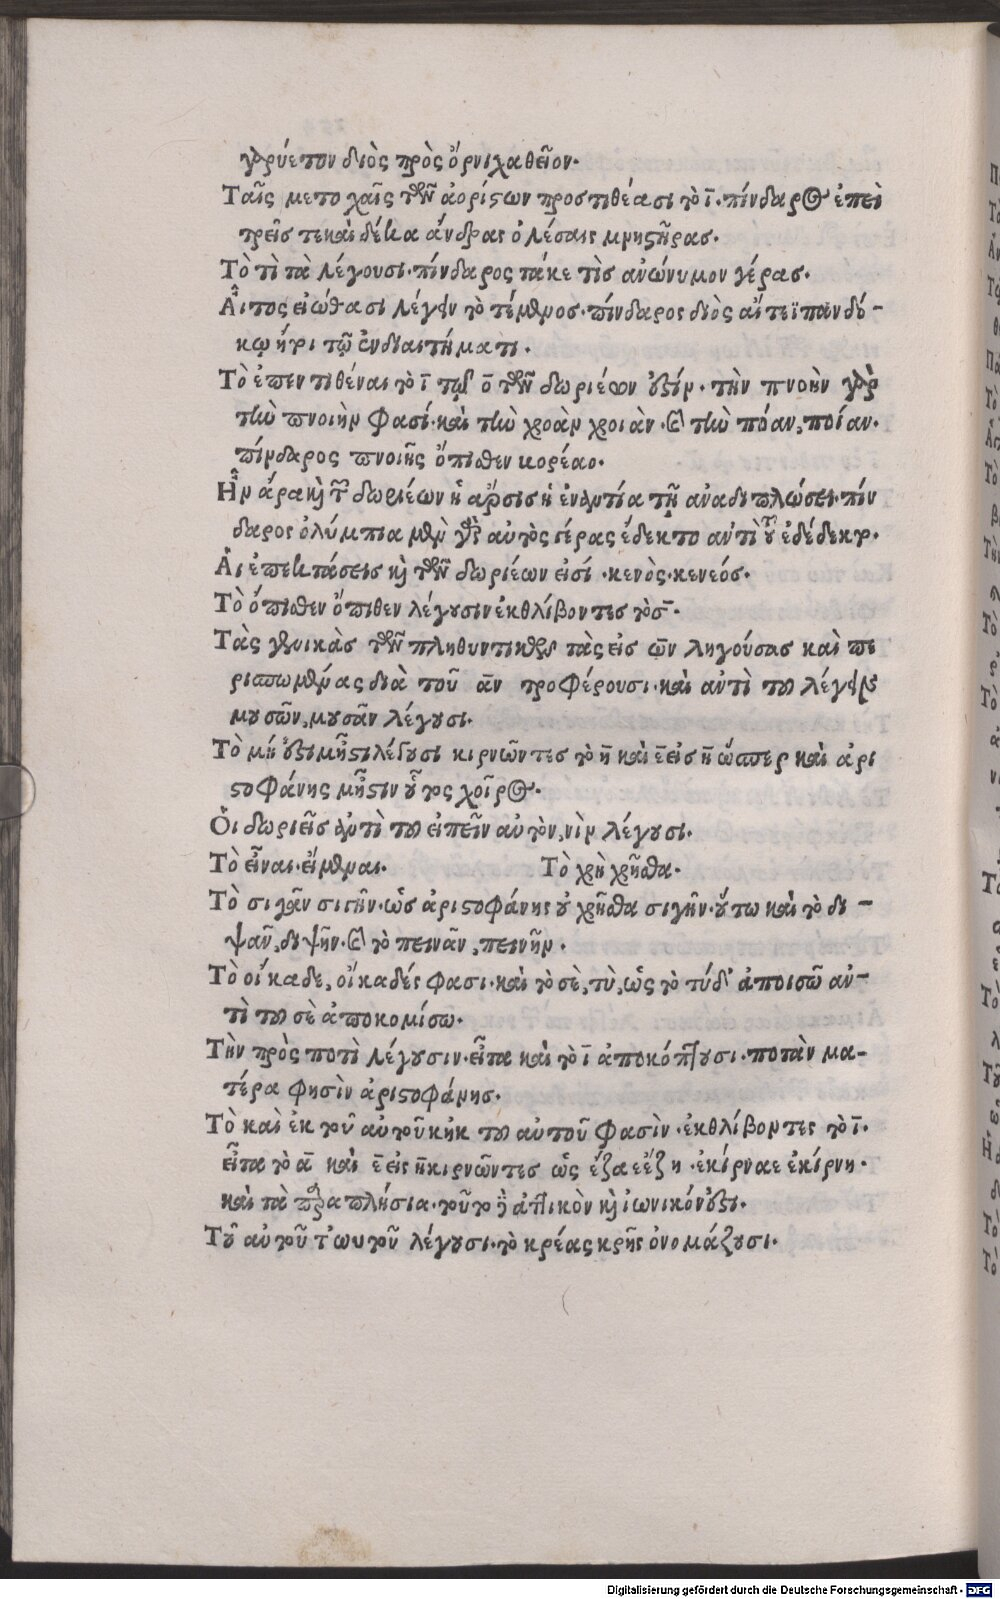 γαρύετον διὸς πρὸς ὄρνιχα θεῖον.
Ταῖς μετοχαῖς τῶν ἀορίστων προστιθέασι τὸ ϊ. πίνδαρος ἐπεὶ
τρεῖς τε καὶ δέκα ἄνδρας ὀλέσαις μνηστῆρας.
Τὸ τὶ τὰ λέγουσι. πίνδαρος τάκε τὶς ἀνώνυμον γέρας.
Ἄϊτος εἰώθασι λέγειν τὸ τέμενος. πίνδαρος διὸς αἴτεϊ πανδό-
κῳ ἥρι τῷ ἐνδιαιτήματι.
Τὸ ἐπεντιθέναι τὸ ϊ τῷ ο τῶν δωριέων ἐστίν. τὴν πνοὴν γὰρ
τὴν πνοιὴν φασί. καὶ τὴν χροὰν χροιὰν. καὶ τὴν πόαν, ποίαν.
πίνδαρος πνοιῆς ὄπιθεν κορέαο.
Ἦν ἄρα καὶ τῶν δωριέων ἡ ἄρσις ἡ ἐναντία τῇ ἀναδιπλώσει. πίν
δαρος ὀλύμπια μὲν γὰρ αὐτὸς γέρας ἔδεκτο ἀντὶ τοῦ ἐδέδεκτο.
Αἱ ἐπεκτάσεις καὶ τῶν δωριέων εἰσί. κενὸς. κενεός.
Τὸ ὄπισθεν ὄπιθεν λέγουσιν ἐκθλίβοντες τὸ σ.
Τὰς γενικὰς τῶν πληθυντικῶν τὰς εἰς ων ληγούσας καὶ πε
ρισπωμένας διὰ τοῦ αν προφέρουσι. καὶ ἀντὶ τοῦ λέγειν
μουσῶν, μουσᾶν λέγουσι.
Τὸ μή ἐστι μἦστι λέγουσι κιρνῶντες τὸ η καὶ ε εἰς η ὥσπερ καὶ ἀρι
στοφάνης μἦστιν οὗτος χοῖρος.
Οἱ δωριεῖς ἀντὶ τοῦ εἰπεῖν αὐτὸν, νὶν λέγουσι.
Τὸ εἶναι. εἴμεναι. Τὸ χρὴ χρῆσθα.
Τὸ σιγᾶν σιγῆν. ὡς ἀριστοφάνης οὐ χρῆσθα σιγῆν. οὕτω καὶ τὸ δι-
ψᾶν, διψῆν. καὶ τὸ πεινᾶν, πεινῆν.
Τὸ οἴκαδε, οἴκαδές φασι. καὶ τὸ σὲ, τὺ, ὡς τὸ τύδ' ἀποισῶ ἀν-
τὶ τοῦ σὲ ἀποκομίσω.
Τὴν πρὸς ποτὶ λέγουσιν. εἶτα καὶ τὸ ϊ ἀποκόπτουσι. ποτὰν μα-
τέρα φησὶν ἀριστοφάνης.
Τὸ καὶ ἐκ τοῦ αὐτοῦ κἠκ τοῦ αὐτοῦ φασὶν. ἐκθλίβοντες τὸ ϊ.
εἶτα τὸ α καὶ ε εἰς η κιρνῶντες ὡς ἔζαε ἔζη. ἐκίρναε ἐκίρνη.
καὶ τὰ παραπλήσια. τοῦτο δὲ ἀττικὸν καὶ ἰωνικόν ἐστι.
Τοῦ αὐτοῦ τ' ωυτοῦ λέγουσι. τὸ κρέας κρῆς ὀνομάζουσι.
Digitalisierung gefördert durch die Deutsche Forschungsgemeinschaft - DFG